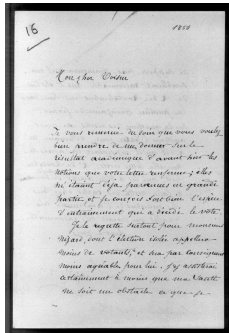 16
1850
Mon cher Voisin
Je vous remercie du soin que vous voulez
bien prendre de me donner sur le
résultat académique d'avant hier les
notions que votre lettre renferme; elles
m'étaient déjà parvenues en grande
partie et je conçois fort bien l'espèce
d'entrainement qui a décidé le vote.
Je le regrette surtout pour monsieur
Nizard, dont l'élection
moins de votants, et sera par conséquent
moins agréable pour lui. J'y assisterai
certainement à moins que ma santé
ne soit un obstacle ce que je